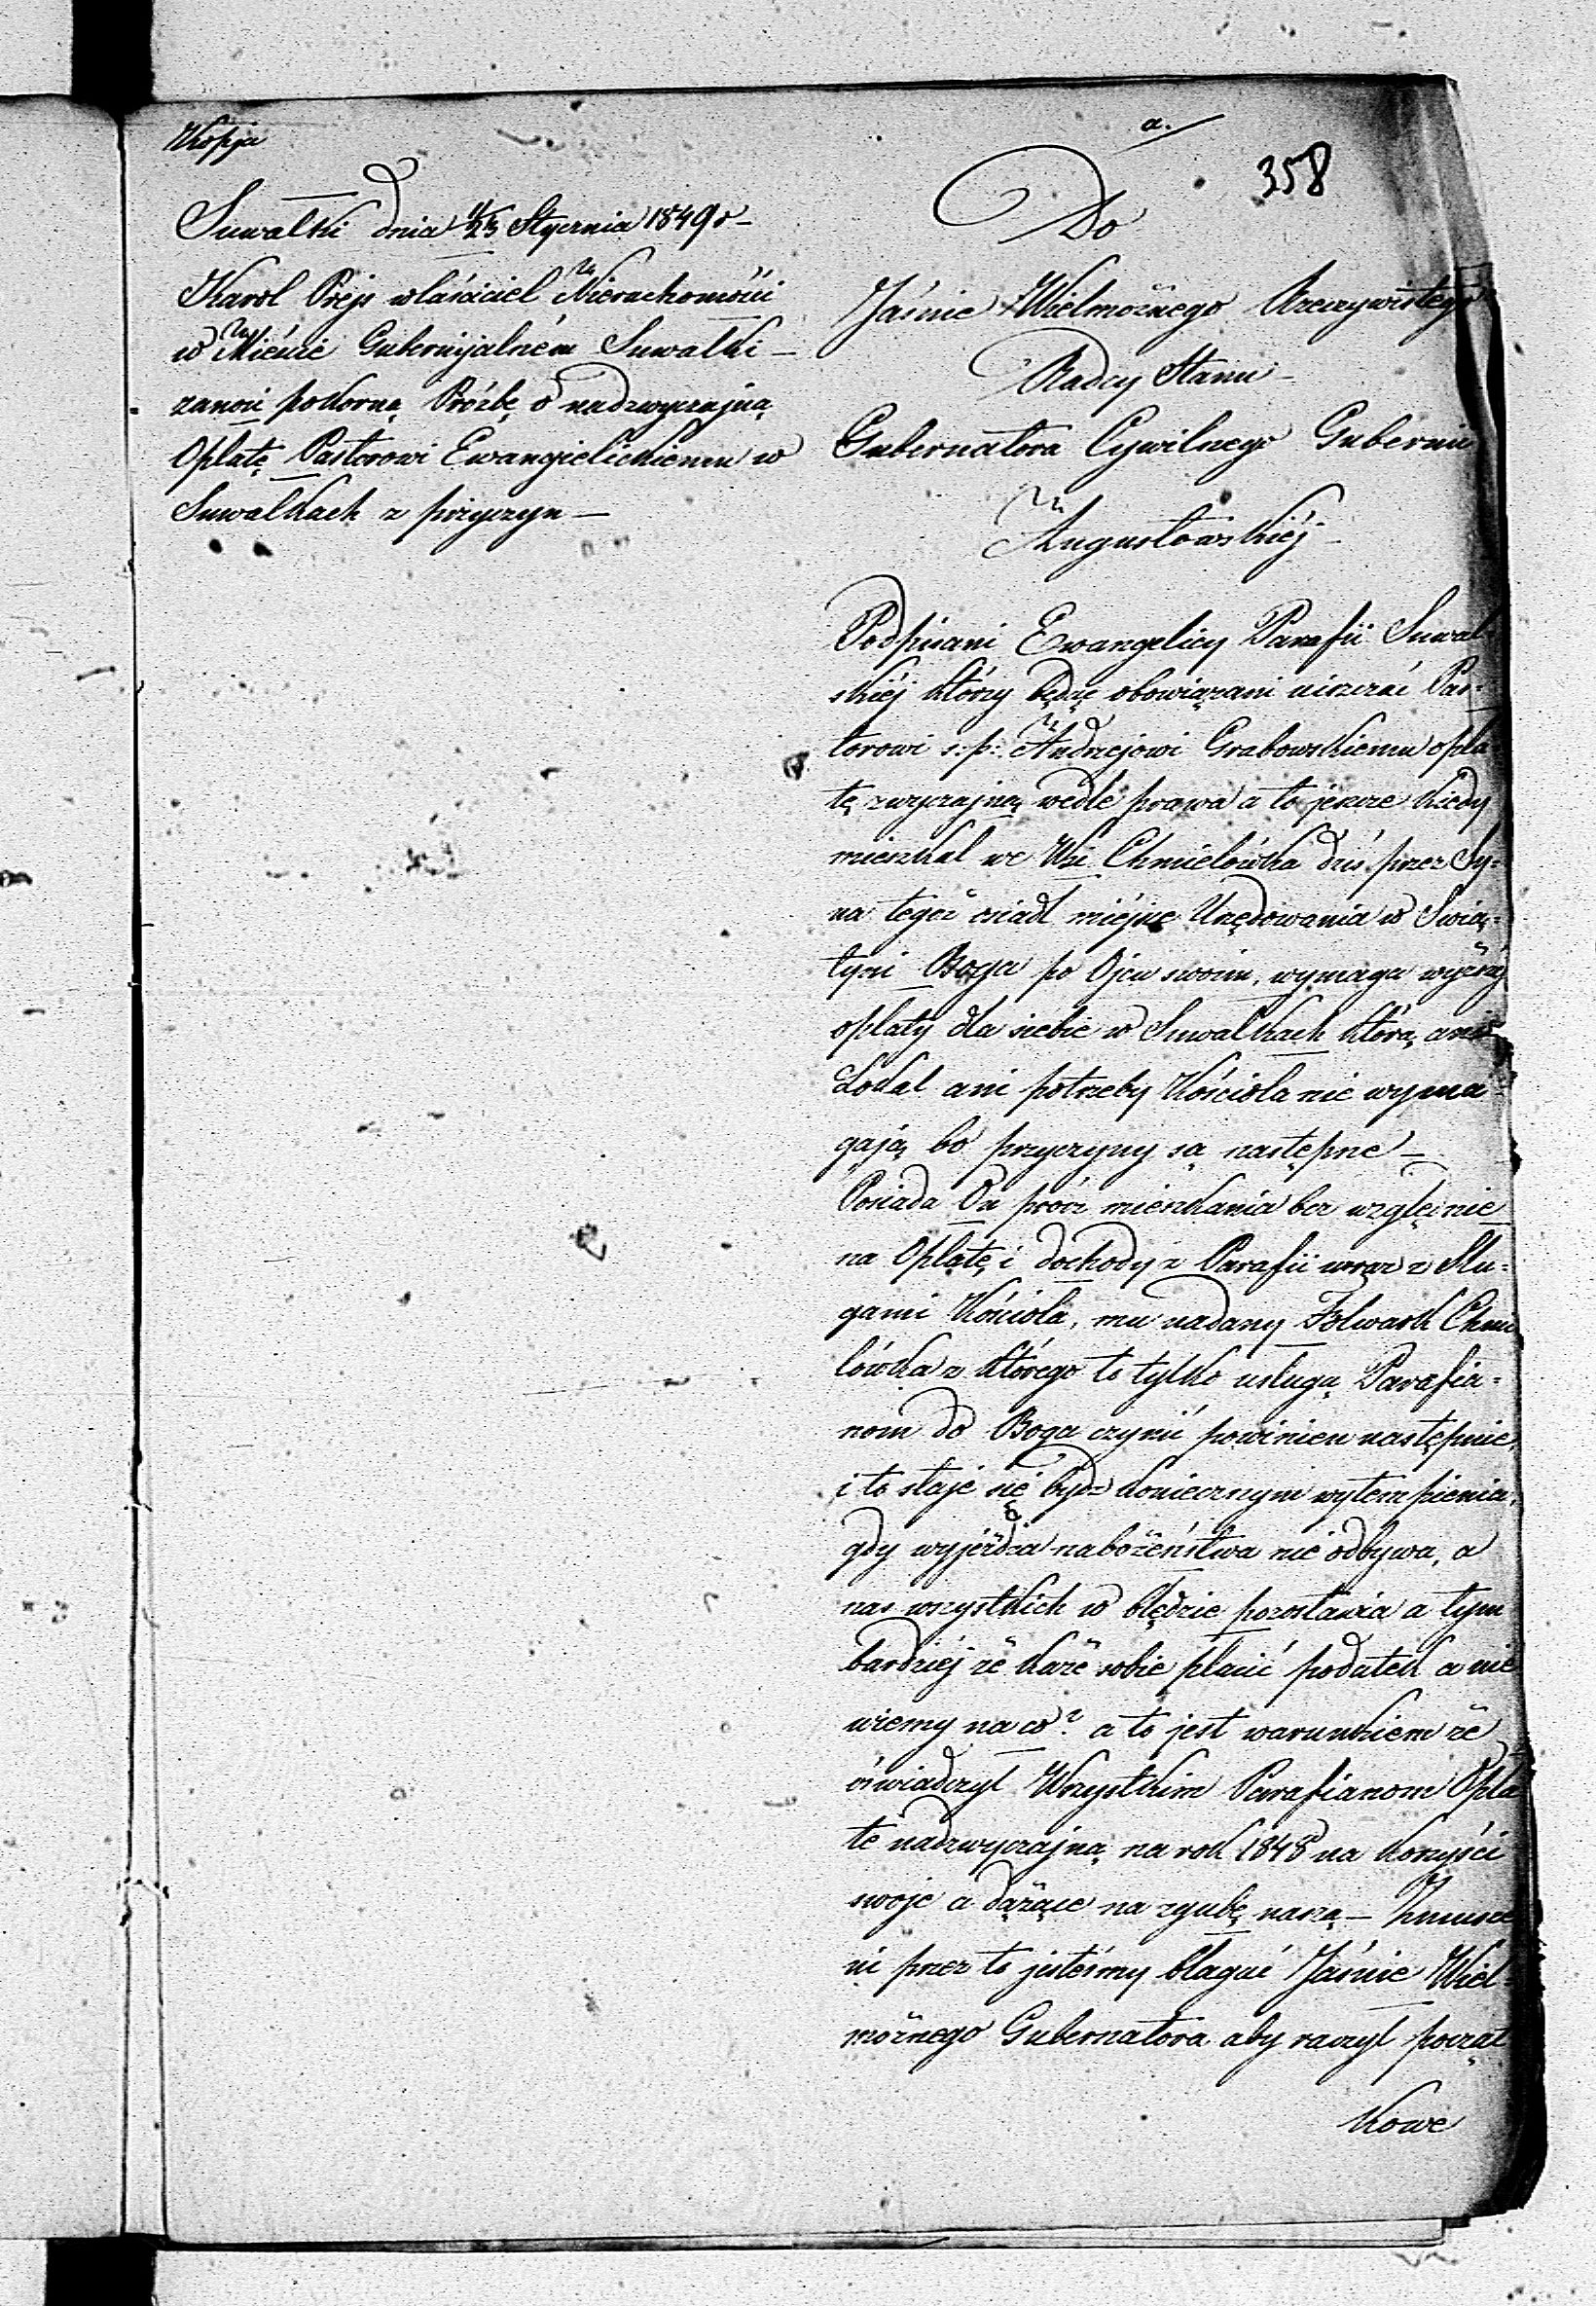 Kopja
Suwałki dnia 11/23 Stycznia 1849 r -
Karol Prejs właściciel Nieruchomości
w Mieście Gubernijalném Suwałki -
zanosi pokorną Prózbę o nadzwyczajną
Opłatę Pastorowi Ewangielickiemu w
Suwałkach z przyczyn -
a.
358
Do
Jaśnie Wielmożnego Rzeczywistego
Radcy Stanu -
Gubernatora Cywilnego Gubernii
Augustowskiéj -
Podpisani Ewangelicy Parafii Suwal-
skiéj którzy będąc obowiązani uiszczać Pas-
torowi s: p: Andrzejowi Grabowskiemu opła-
tę zwyczajną wedle prawa a to jeszcze kiedy
mieszkał we Wsi Chmielówka dziś przez Sy-
na tegoż osiadł miéjsce Urzędowania w Swią-
tyni Boga po Ojcu swoim, wymaga wyższéj
opłaty dla siebie w Suwałkach którą ani
Lokal ani potrzeby Kościoła nie wyma-
gają bo przyczyny są następne -
Posiada On prócz mieszkania bez względnie
na Opłatę i dochody z Parafii wraz z Słu-
gami Kościoła, mu nadany Folwark Chmie
lówka z którego to tylko usługą Parafia-
nom do Boga czynić powinien następnie,
i to staje się bydź koniecznym wytempienia,
gdy wyjeżdża nabożeństwa nie odbywa, a
nas wszystkich w błędzie pozostawia a tym
bardziéj że każe sobie płacić podatek a nie
wiemy na co? a to jest warunkiem że
oświadczył Wszystkim Parafianom Opła
tę nadzwyczajną na rok 1848 na korzyści
swoje a dążące na zgubę naszą - Zmusze
ni przez to jesteśmy błagać Jaśnie Wiel-
możnego Gubernatora aby raczył począt
kowe